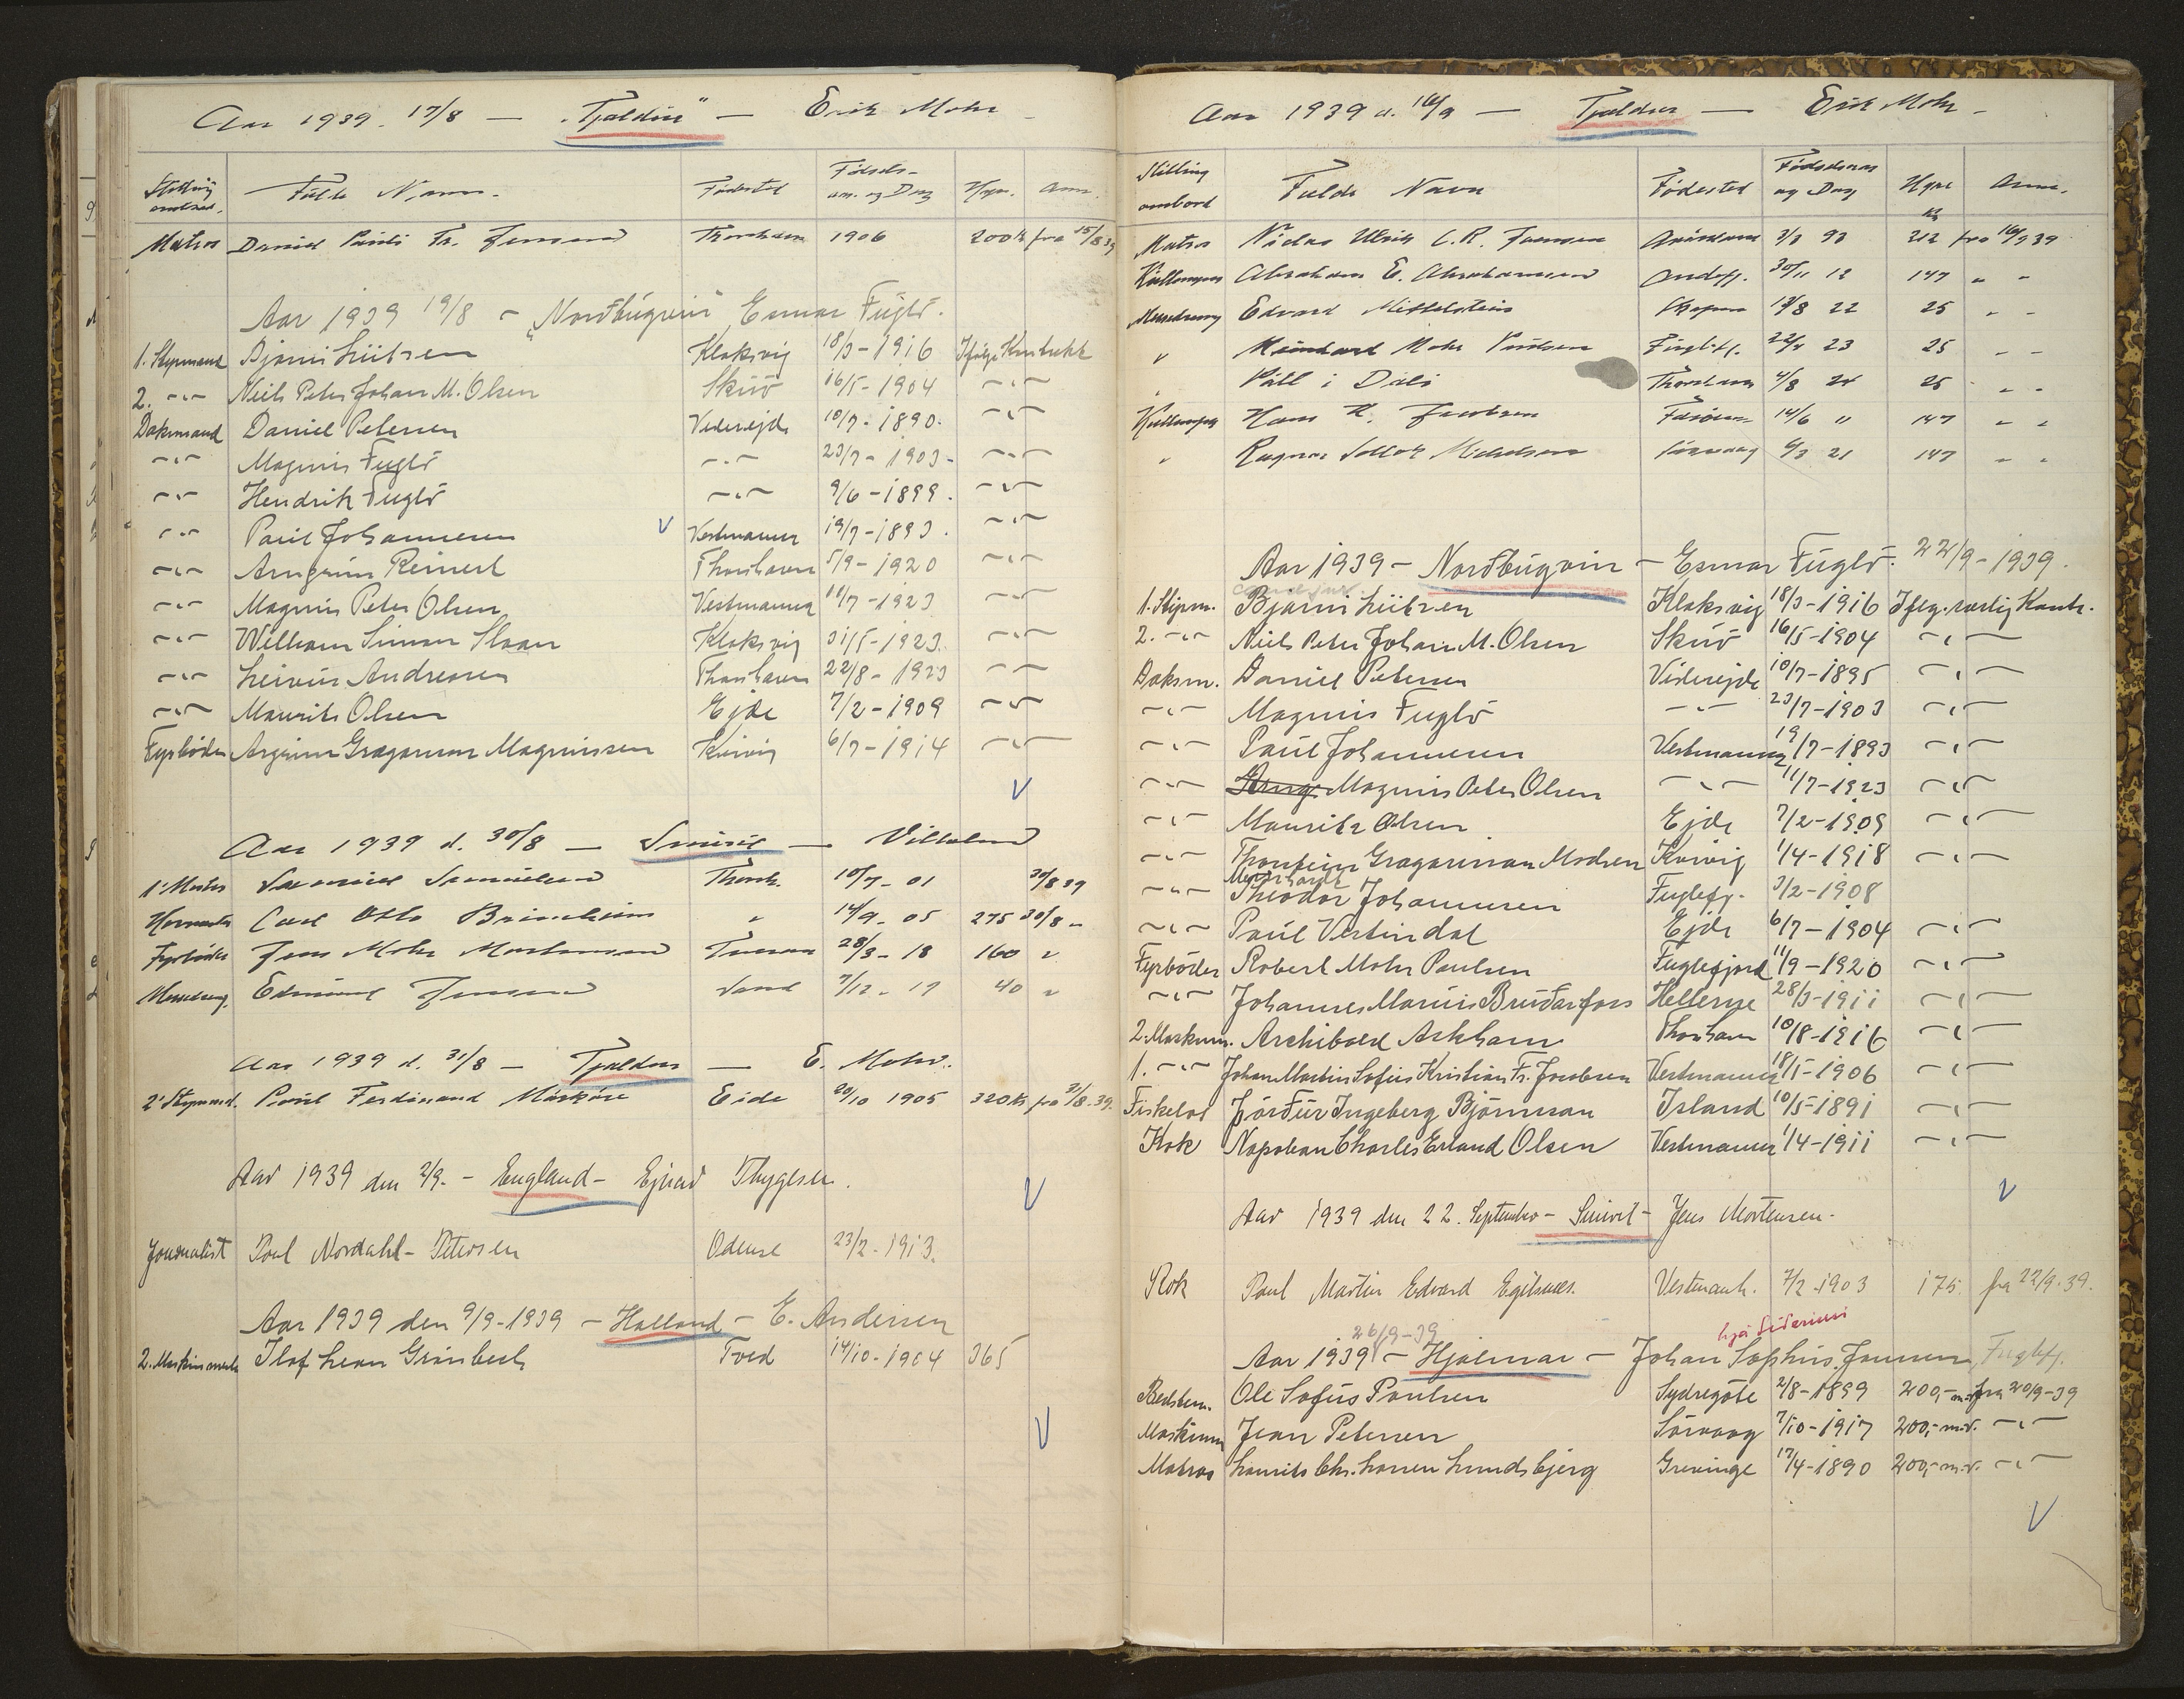 Aar 1939. 17/8 — "Tjaldur" — Erik Mohr
Stilling ombord. Fulde Navn. Fødested Fødsels- aar og Dag Hyre. Anm.
Matros Daniel Pauli Fr. Jensen Thorshavn 1906 200 kr fra 15/8 39
Aar 1939 19/8 — "Nordbugvin" Esmar Fuglø.
1. Styrmand Bjarni Lützen Klaksvig 18/3-1916 Ifølge Kontrakt
2. -"- Niels Peter Johan M. Olsen Skuø 16/5-1904 -"-
Daksmand Daniel Petersen Viderejde 10/7-1890. -"-
-"- Magnus Fuglø -"- 23/7-1903- -"-
-"- Hendrik Fuglø -"- 9/6-1899. -"-
-"- Paul Johannesen V Vestmanna 19/7-1893. -"-
-"- Arngrim Reinert Thorshavn 5/9-1920 -"-
-"- Magnus Peter Olsen Vestmanna 11/7-1923 -"-
-"- William Simon Sloan Klaksvig 31/5-1923. -"-
-"- Leivur Andreasen Thorshavn 22/8-1923 -"-
-"- Maurits Olsen Ejde 7/2-1909 -"-
Fyrbøder Argrim Gregersen Magnussen Kvivig 6/7-1914 -"-
V
Aar 1939 d. 30/8 — Smiril — Vilhelm
1' Mester Samuel Samuelsen Thorsh. 10/7-01 30/8 39
Carl Otto Brimheim " 14/9-05 275 30/8 -
Fyrbøder Jens Mohr Mortensen 28/3-18 160 "
Messedreng Edmund Jensen Sand 7/12-17 40 "
Aar 1939 d. 31/8 — Tjaldur — E. Mohr.
2' Styrmand. Poul Ferdinand Mørkøre Eide 20/10 1905 320 kr fra 31/8.39.
Aar 1939 den 2/9. - England - Ejnar Thygesen. V
Journalist Poul Nordahl-Petersen Odense 23/2-1913.
Aar 1939 den 9/9-1939 - Halland - E. Andersen
2. Maskinmester Ilof Leon Grønbech Tved 14/10-1904 365
V
Aar 1939 d. 16/9 — Tjaldur — Erik Mohr -
Stilling ombord Fulde Navn Fødested Fødselsaar og Dag Hyre Anm.
kr
Matros Niclas Ulrik C. R. Joensen 3/3 93 212 fra 16/9 39
Abraham E. Abrahamsen Andefj. 30/11 12 147 " -
Messedreng Edvard Mittelstein 13/8 22 25 " -
" Meinhard Mohr Poulsen Fuglefj. 22/4 23 25 - -
" Páll i Dali Thorshavn 4/8 24 25 " -
Hans K. Jacobsen 14/6 " 147 " "
" Ragnar Mikkelsen Sørvaag 6/3 21 147 " "
Aar 1939 - Nordbugvin - Esmar Fuglø. 22/9-1939.
1. Styrm. Bjarni Lützen Klaksvig 18/3-1916 Ifølg. særlig Kontr.
2. -"- Niels Peter Johan M. Olsen Skuø 16/5-1904 -"-
Daksm. Daniel Petersen Viderejde 10/7-1895 -"-
-"- Magnus Fuglø -"- 23/7-1903 -"-
-"- Paul Johannesen Vestmanna 19/7-1893 -"-
-"- Arng. Magnus Peter Olsen -"- 11/7-1923 -"-
-"- Maurits Olsen Ejde 7/2-1909 -"-
-"- Thorstein Gregersen Madsen Kvivig 1/4-1918 -"-
-"- Theodor Johannesen Fuglefj. 3/2-1908
-"- Paul Vestindal Ejde 6/7-1904 -"-
Fyrbøder Robert Mohr Paulsen Fuglefjord 11/9-1920 -"-
-"- Johannes Marius Brudarfoss Hellerne 28/3-1911 -"-
2. Maskinm. Archibald Askham Thorshavn 10/8-1916 -"-
1. -"- Johan Martin Sofus Kristian Fr. Jacobsen Vestmanna 18/5-1906 -"-
Fiskelos Þórður Ingeberg Björnsson Island 10/5-1891 -"-
Kok Napolean Charles Erland Olsen Vestmanna 1/4-1911 -"-
V
Aar 1939 den 22. September - Smiril - Jens Mortensen -
Kok Poul Martin Edvard Egilsnes. Vestmanh. 7/2-1903 175. fra 22/9.39.
26/9-39
Aar 1939 - Hjalmar - Johan Sophus Joensen, Fuglefj.
Bedstem. Ole Sofus Poulsen Sydregøte 2/8-1899 200,- md. fra 20/9-39
Maskinm Jean Petersen Sørvaag 7/10-1917 200,- md. -"-
Matros Laurits Chr. Larsen Lundsbjerg Grevinge 17/4-1890 200,- md. -"-
V